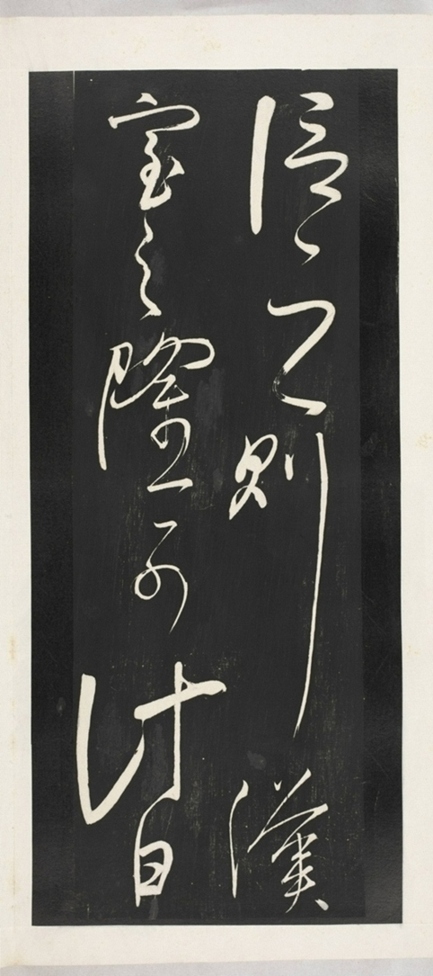 信之則漢
室之隆可
計日